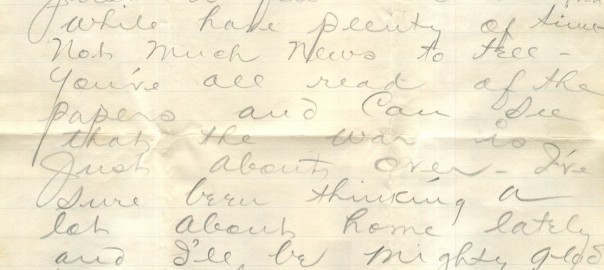 while have plenty of time
Not Much News to tell -
You've all read of the
papers and Can See
that the war is
Just about over - I've
Sure been thinking a
lot about home lately
and I'll be mighty glad